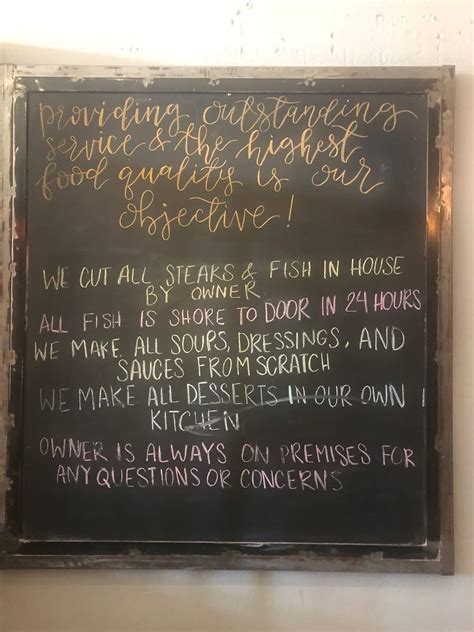 providing outstanding
service & the highest
food quality is our
objective!
WE CUT ALL STEAKS & FISH IN HOUSE
BY OWNER
ALL FISH IS SHORE TO DOOR IN 24 HOURS
WE MAKE ALL SOUPS, DRESSINGS, AND
SAUCES FROM SCRATCH
WE MAKE ALL DESSERTS IN OUR OWN
KITCHEN
OWNER IS ALWAYS ON PREMISES FOR
ANY QUESTIONS OR CONCERNS